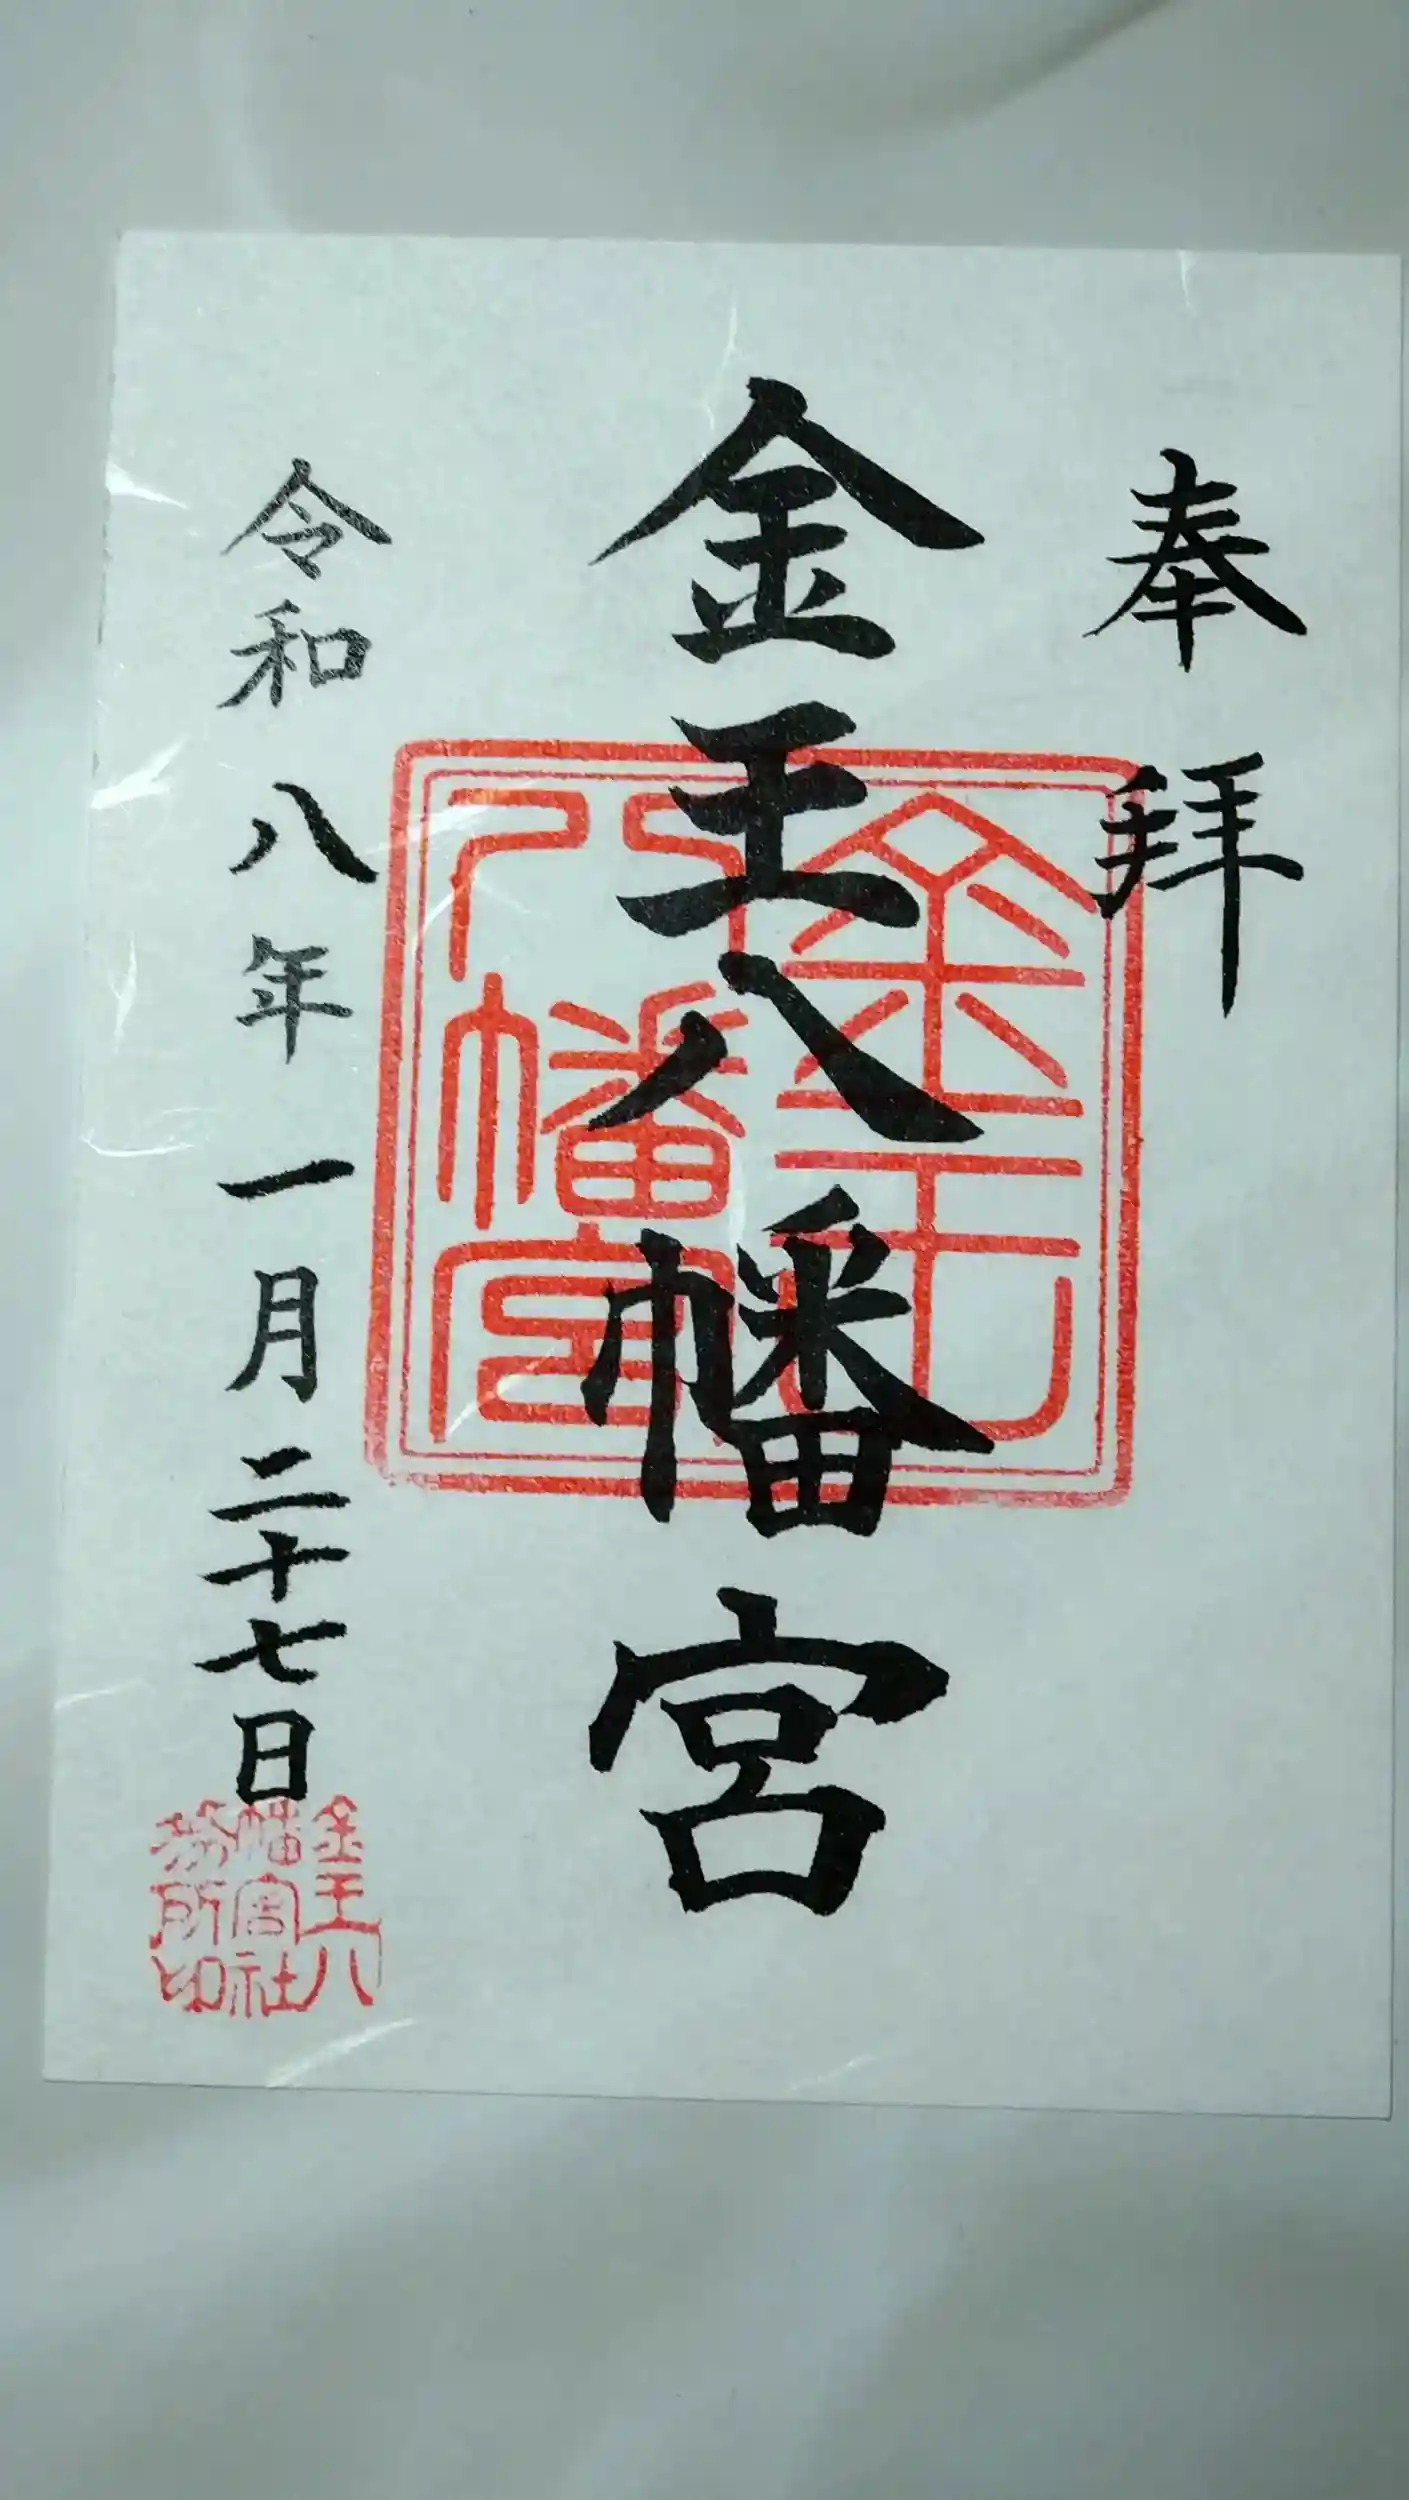 奉拝
金王八幡宮
令和八年一月二十七日
金王
八幡宮
金王八
幡宮社
務所印